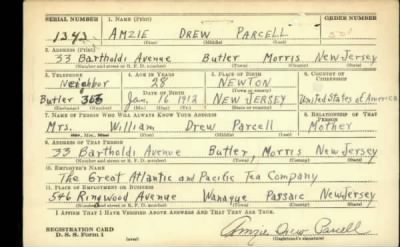 SERIAL NUMBER 1. NAME (Print) ORDER NUMBER
1343 AMZIE DREW PARCELL
(First) (Middle) (Last)
2. ADDRESS (Print)
33 Bartholdi Avenue Butler Morris New Jersey
(Number and street or R. F. D. number) (Town) (County) (State)
3. TELEPHONE 4. AGE IN YEARS 5. PLACE OF BIRTH 6. COUNTRY OF CITIZENSHIP
Neighbor 28 NEWTON
DATE OF BIRTH
Butler 303 Jan. 16 1912 NEW JERSEY United States of America
7. NAME OF PERSON WHO WILL ALWAYS KNOW YOUR ADDRESS 8. RELATIONSHIP OF THAT PERSON
Mrs. William Drew Parcell Mother
(Mr., Mrs., Miss) (First) (Middle) (Last)
9. ADDRESS OF THAT PERSON
33 Bartholdi Avenue Butler Morris New Jersey
(Number and street or R. F. D. number) (Town) (County) (State)
10. EMPLOYER'S NAME
The Great Atlantic and Pacific Tea Company
11. PLACE OF EMPLOYMENT OR BUSINESS
546 Ringwood Avenue Wanaque Passaic New Jersey
(Number and street or R. F. D. number) (Town) (County) (State)
I AFFIRM THAT I HAVE VERIFIED ABOVE ANSWERS AND THAT THEY ARE TRUE.
REGISTRATION CARD
D. S. S. Form 1 Amzie Drew Parcell
(Registrant's signature)